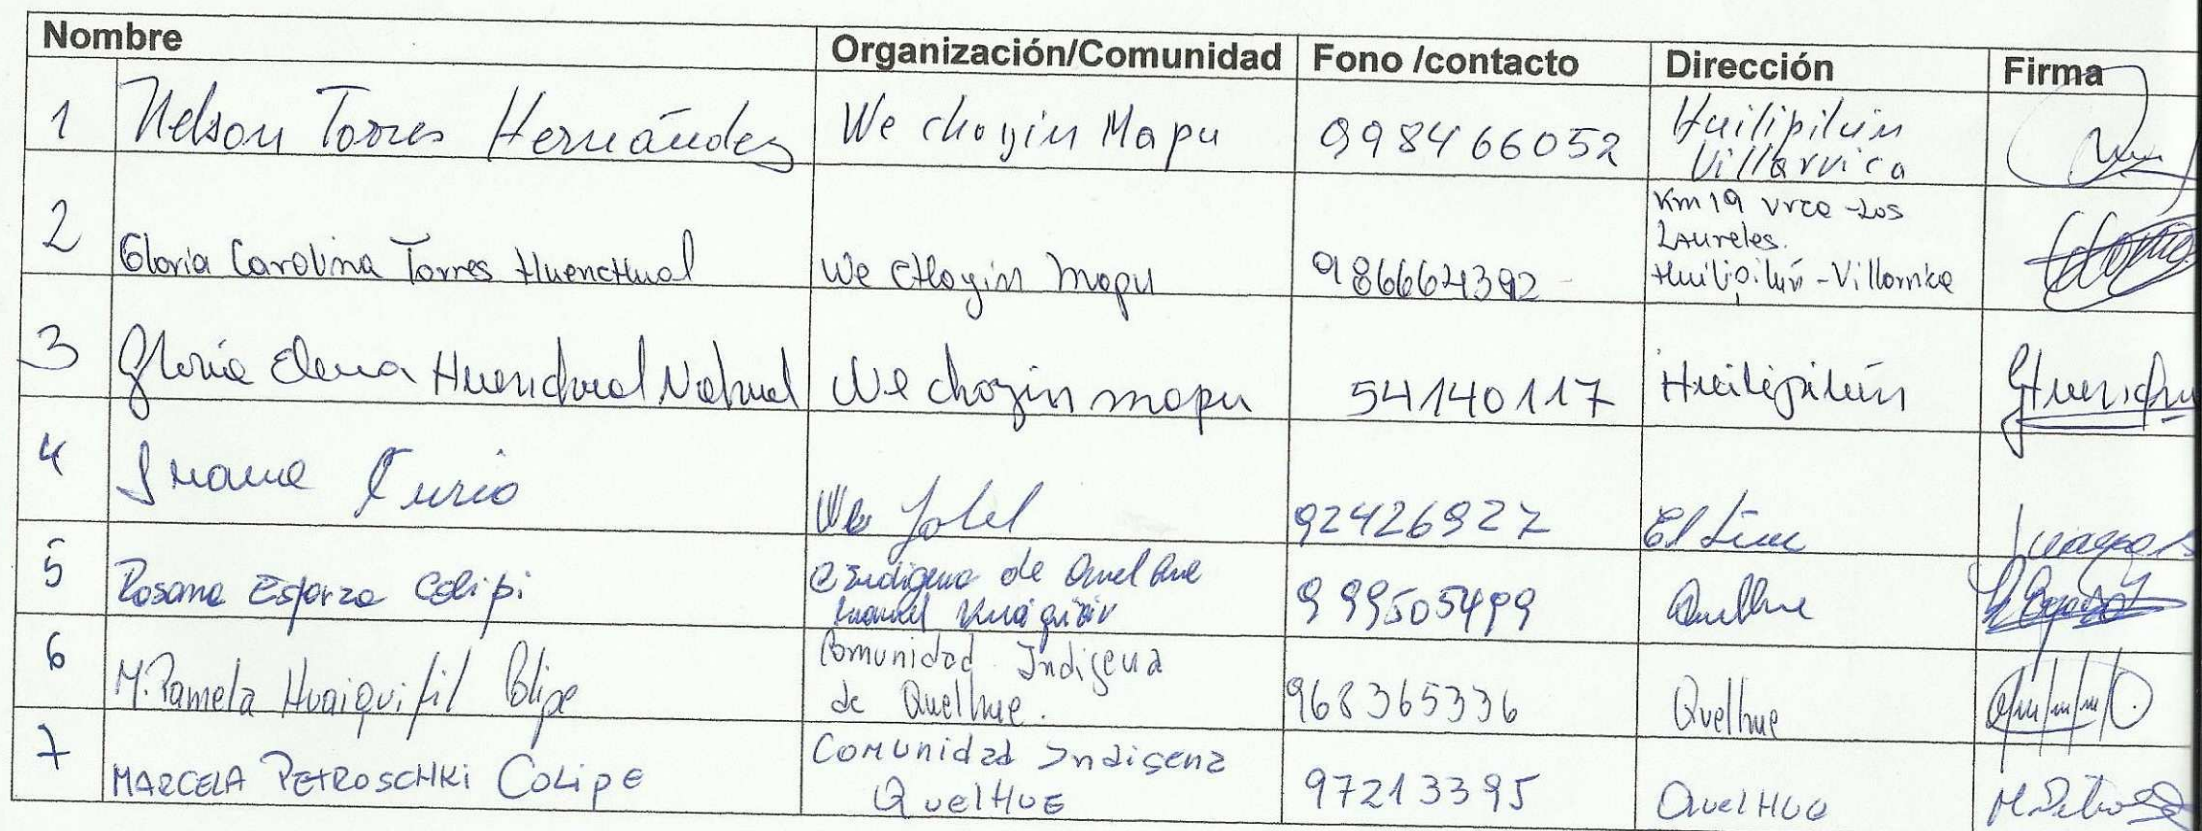 Nombre Organización/Comunidad Fono /contacto Dirección Firma
1 Nelson Torres Hernández We choyin Mapu 998466052 Huilipilún
Villarrica
2 Gloria Carolina Torres HuencHual We cHoyin mapu 986664392 Km 19 vrca -Los
Laureles.
Huilipilún - Villarrica
3 Gloria Elena Huenchual Nahuel We choyin mapu 54140117 Huilipilún
4 Curio We 92426927 El
5 Rosana Esparza Colipi C Indigena de Quelhue 999505499 Quelhue
Manuel
6 M. Pamela Huaiquifil Colipe Comunidad Indigena
de Quelhue. 968365336 Quelhue
7 MARCELA PETROSCHKI COLIPE Comunidad Indigena
QuelHUE 97213395 QuelHue